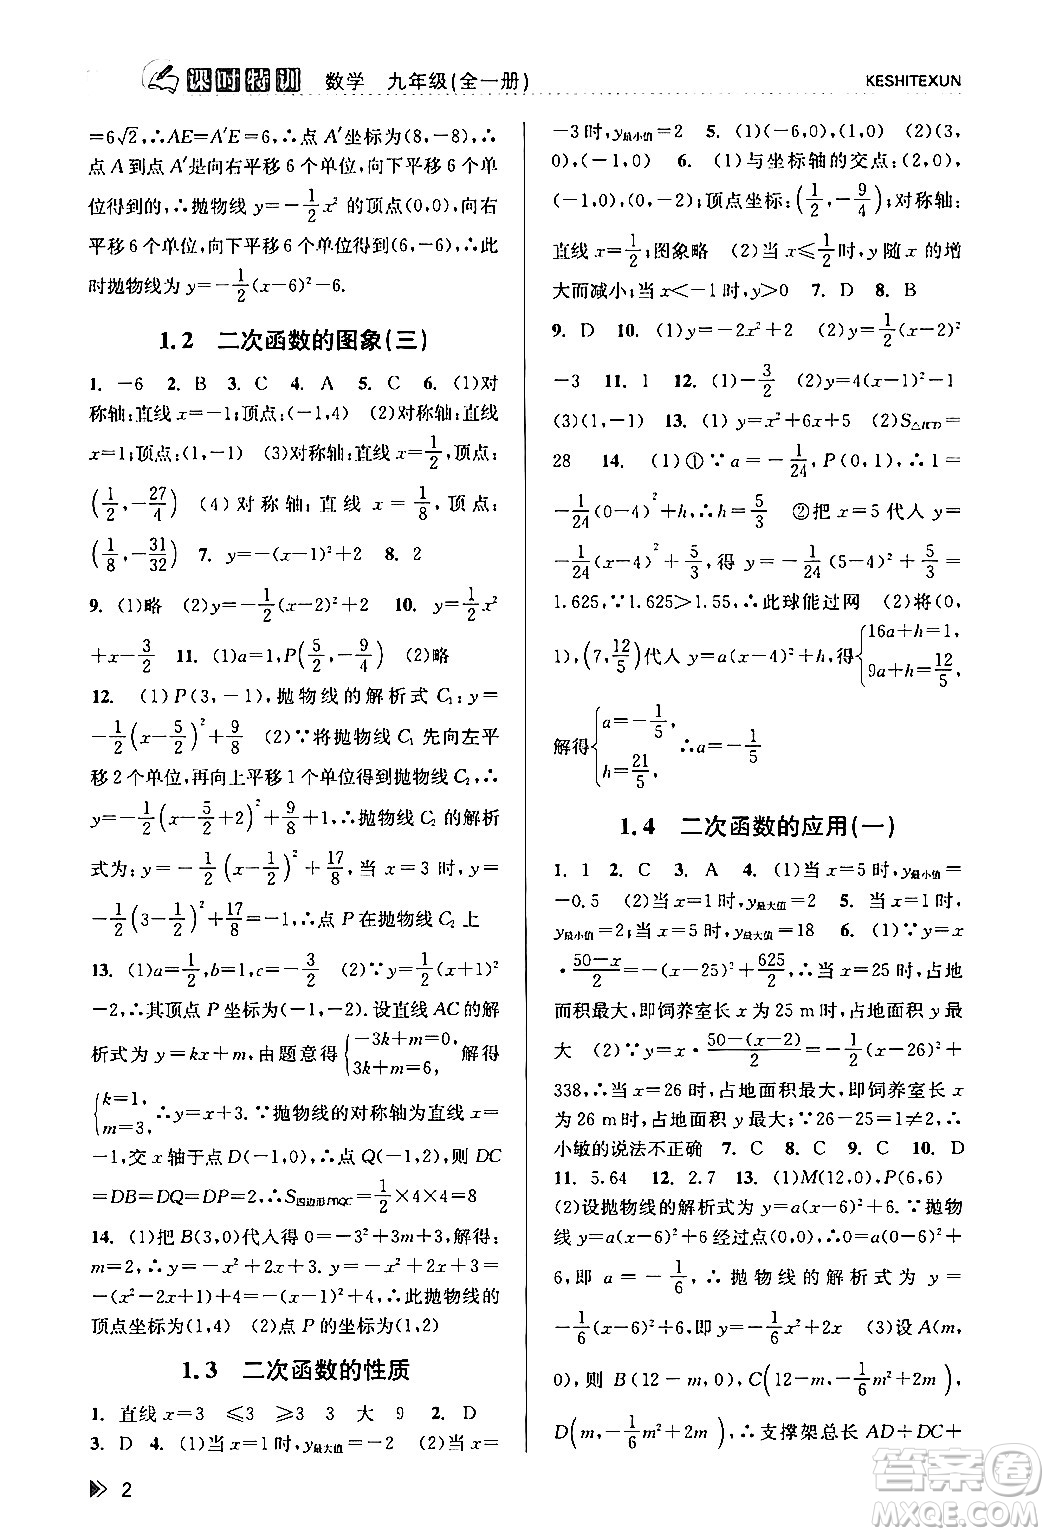 课时特训 数学 九年级(全一册)
KESHITEXUN
=6√2,∴AE=A′E=6,∴点 A′坐标为(8,-8),∴
点 A 到点 A′是向右平移 6 个单位,向下平移 6 个单
位得到的,∴抛物线 y=-1/2x² 的顶点(0,0),向右
平移 6 个单位,向下平移 6 个单位得到(6,-6),∴此
时抛物线为 y=-1/2(x-6)²-6.
1.2 二次函数的图象(三)
1. -6 2. B 3. C 4. A 5. C 6. (1)对
称轴:直线 x=-1;顶点:(-1,4) (2)对称轴:直线
x=1;顶点:(1,-1) (3)对称轴:直线 x=1/2,顶点:
(1/2,-27/4) (4)对称轴:直线 x=1/8,顶点:
(1/8,-31/32) 7. y=-(x-1)²+2 8. 2
9. (1)略 (2)y=-1/2(x-2)²+2 10. y=1/2x²
+x-3/2 11. (1)a=1,P(5/2,-9/4) (2)略
12. (1)P(3,-1),抛物线的解析式 C₁:y=
-1/2(x-5/2)²+9/8 (2)∵将抛物线 C₁ 先向左平
移 2 个单位,再向上平移 1 个单位得到抛物线 C₂,∴
y=-1/2(x-5/2+2)²+9/8+1,∴抛物线 C₂ 的解析
式为:y=-1/2(x-1/2)²+17/8,当 x=3 时,y=
-1/2(3-1/2)²+17/8=-1,∴点 P 在抛物线 C₂ 上
13. (1)a=1/2,b=1,c=-3/2 (2)∵y=1/2(x+1)²
-2,∴其顶点 P 坐标为(-1,-2).设直线 AC 的解
析式为 y=kx+m,由题意得{-3k+m=0, k+m=6, 解得
{k=1, m=3, ∴y=x+3.∵抛物线的对称轴为直线 x=
-1,交 x 轴于点 D(-1,0),点 Q(-1,2),则 DC
=DB=DQ=DP=2,∴S四边形PBQC=1/2×4×4=8
14. (1)把 B(3,0)代入得 0=-3²+3m+3,解得:
m=2,∴y=-x²+2x+3.∵y=-x²+2x+3=
-(x²-2x+1)+4=-(x-1)²+4,∴此抛物线的
顶点坐标为(1,4) (2)点 P 的坐标为(1,2)
1.3 二次函数的性质
1. 直线 x=3 ≤3 ≥3 3 大 9 2. D
3. D 4. (1)当 x=1 时,y最大值=-2 (2)当 x=
-3 时,y最小值=2 5. (1)(-6,0),(1,0) (2)(3,
0),(-1,0) 6. (1)与坐标轴的交点:(2,0),
(-1,0),(0,-2);顶点坐标:(1/2,-9/4);对称轴:
直线 x=1/2;图象略 (2)当 x≤1/2时,y 随 x 的增
大而减小;当 x<-1 时,y>0 7. D 8. B
9. D 10. (1)y=-2x²+2 (2)y=1/2(x-2)²
-3 11. 1 12. (1)-3/2 (2)y=4(x-1)²-1
(3)(1,-1) 13. (1)y=x²+6x+5 (2)S△BCD=
28 14. (1)①∵a=-1/24,P(0,1),∴1=
-1/24(0-4)²+h,∴h=5/3 ②把 x=5 代入 y=
-1/24(x-4)²+5/3,得 y=-1/24(5-4)²+5/3=
1.625,∵1.625>1.55,∴此球能过网 (2)将(0,
1),(7,12/5)代入 y=a(x-4)²+h,得{16a+h=1, 9a+h=12/5,
解得{a=-1/5, h=21/5, ∴a=-1/5
1.4 二次函数的应用(一)
1. 1 2. C 3. A 4. (1)当 x=5 时,y最小值=
-0.5 (2)当 x=1 时,y最大值=2 5. 当 x=1 时,
y最小值=2;当 x=5 时,y最大值=18 6. (1)∵y=x
·50-x/2=-1/2(x-25)²+625/2,∴当 x=25 时,占地
面积最大,即饲养室长 x 为 25 m 时,占地面积 y 最
大 (2)∵y=x·50-(x-2)/2=-1/2(x-26)²+
338,∴当 x=26 时,占地面积最大,即饲养室长 x
为 26 m 时,占地面积 y 最大;∵26-25=1≠2,∴
小敏的说法不正确 7. C 8. C 9. C 10. D
11. 5.64 12. 2.7 13. (1)M(12,0),P(6,6)
(2)设抛物线的解析式为 y=a(x-6)²+6.∵抛物
线 y=a(x-6)²+6 经过点(0,0),∴0=a(0-6)²+
6,即 a=-1/6,∴抛物线的解析式为 y=
-1/6(x-6)²+6,即 y=-1/6x²+2x (3)设 A(m,
0),则 B(12-m,0),C(12-m,-1/6m²+2m),
D(m,-1/6m²+2m),∴支撑架总长 AD+DC+
2
答案圈
MXQE.COM